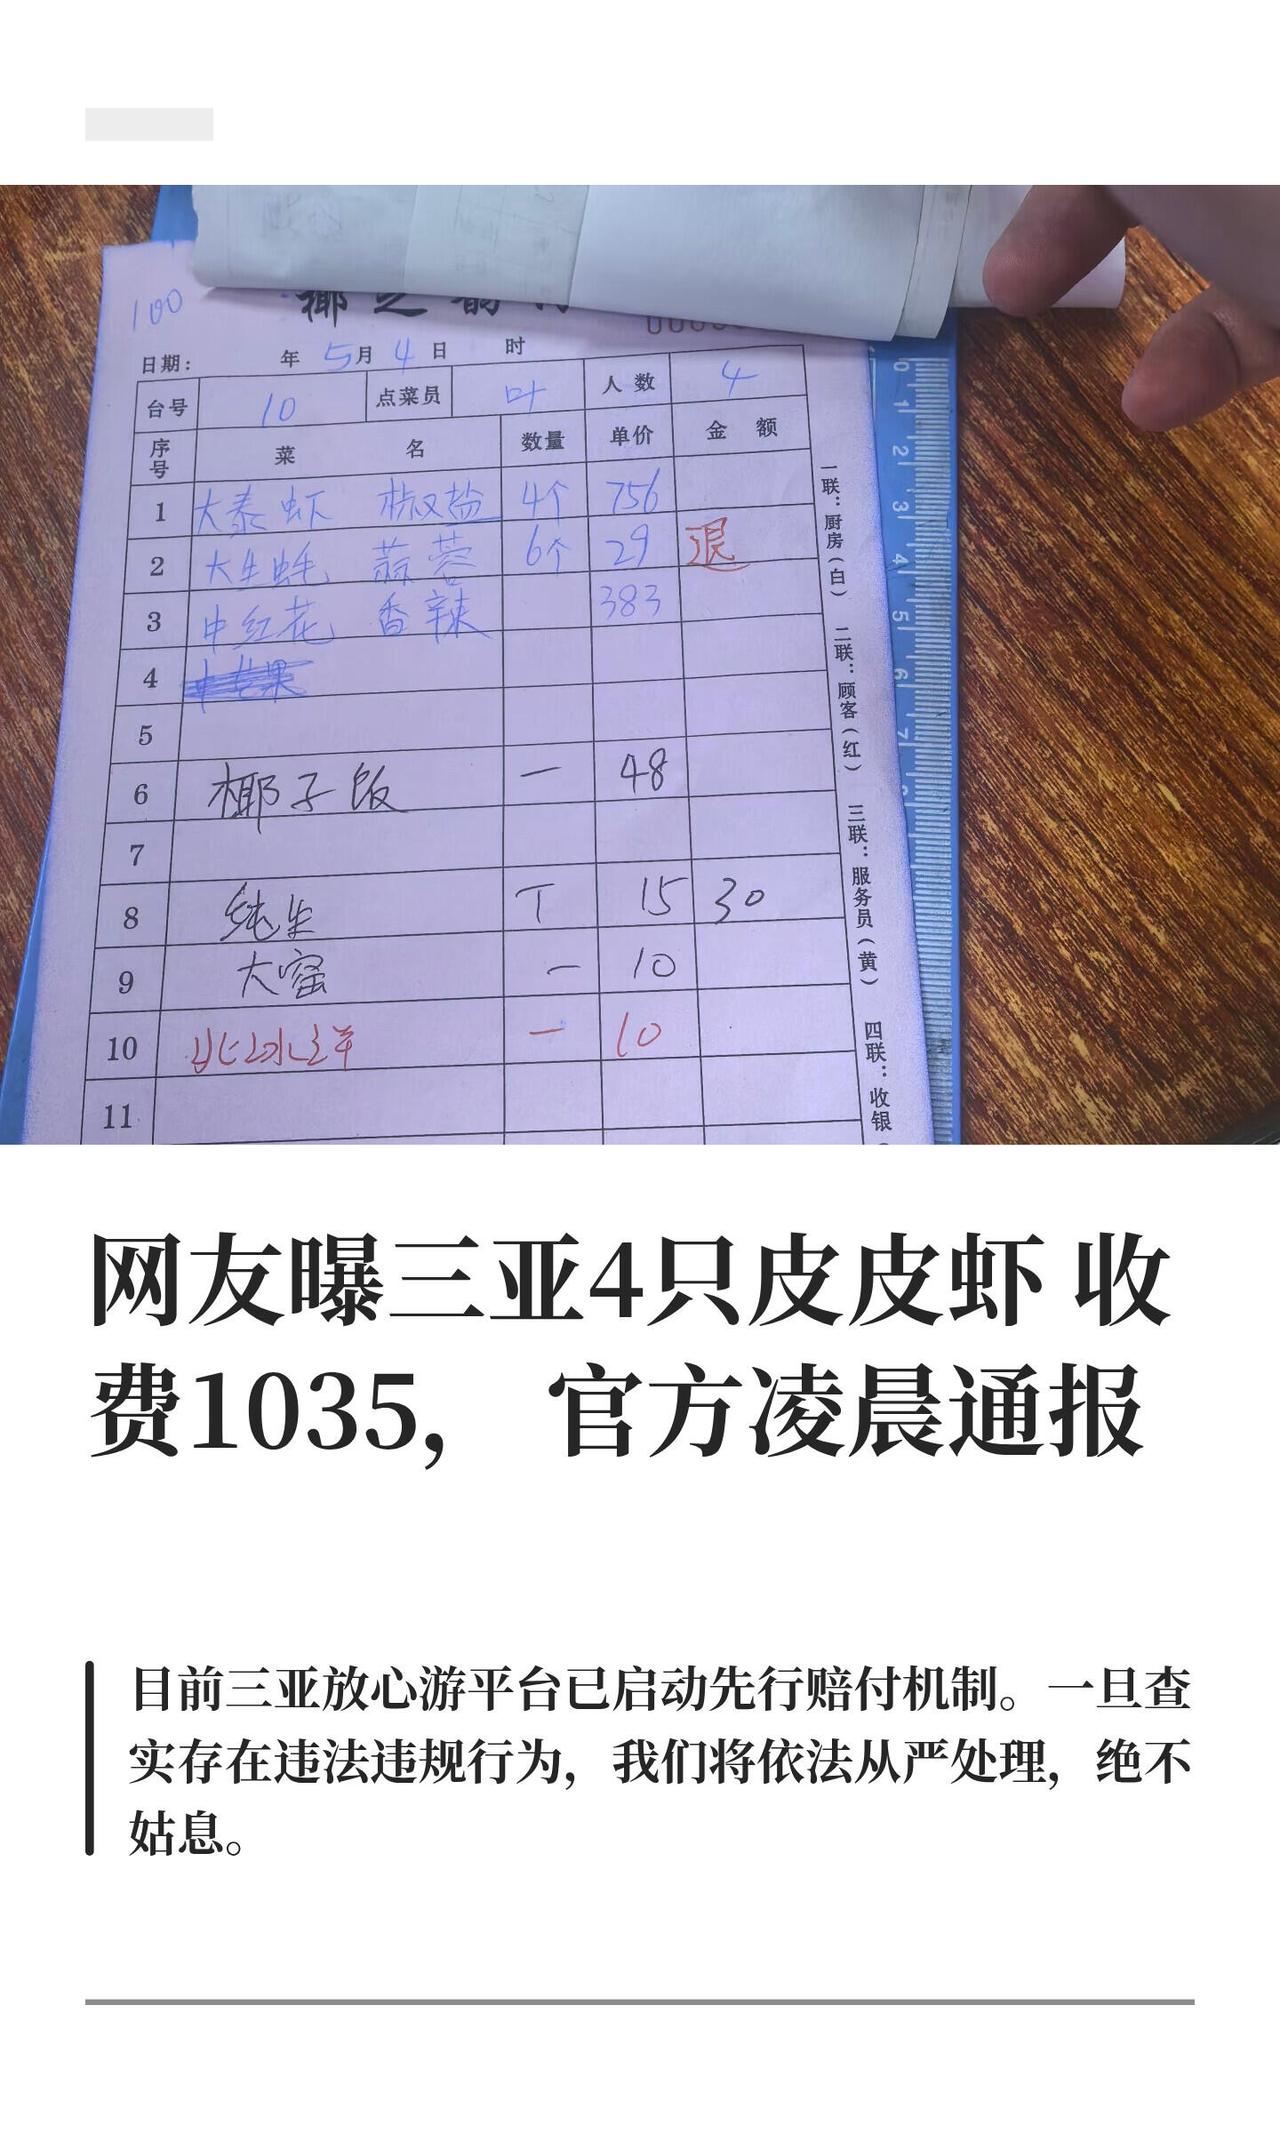 100
日期： 年 5月 4日 时
台号 10 点菜员 叶 人数 4
序号 菜名 数量 单价 金额
1 大泰虾 椒盐 4个 756
2 大生蚝 蒜蓉 6个 29 退
3 中红花 香辣 383
4
5
6 椰子饭 一 48
7
8 纯生 T 15 30
9 大窑 一 10
10 北冰洋 一 10
11
一联：厨房（白） 二联：顾客（红） 三联：服务员（黄） 四联：收银
0 1 2 3 4 5 6 7
网友曝三亚4只皮皮虾 收
费1035， 官方凌晨通报
目前三亚放心游平台已启动先行赔付机制。一旦查
实存在违法违规行为，我们将依法从严处理，绝不
姑息。